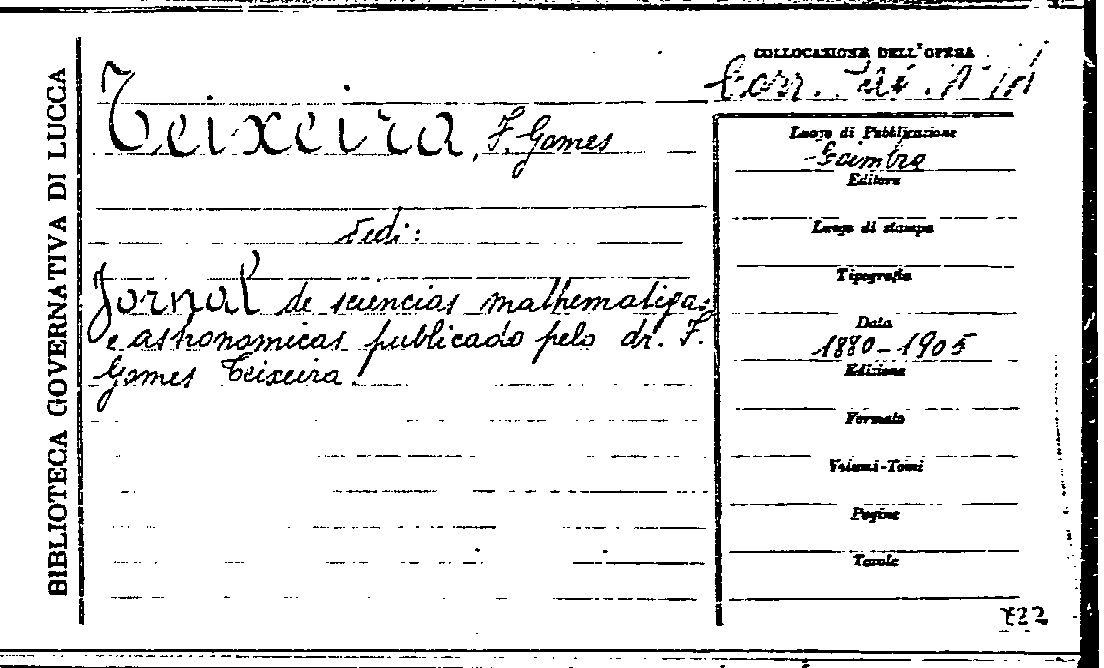 BIBLIOTECA GOVERNATIVA DI LUCCA
Teixeira, F. Gomes
Vedi:
Jornal de sciencias mathematigas
e astronomicas publicado pelo dr. F.
Gomes Teixeira.
COLLOCAZIONE DELL'OPERA
Luogo di Pubblicazione
Coimbra
Editore
Luogo di stampa
Tipografia
Data
1880-1905
Edizione
Formato
Volumi-Tomi
Pagine
Tavole